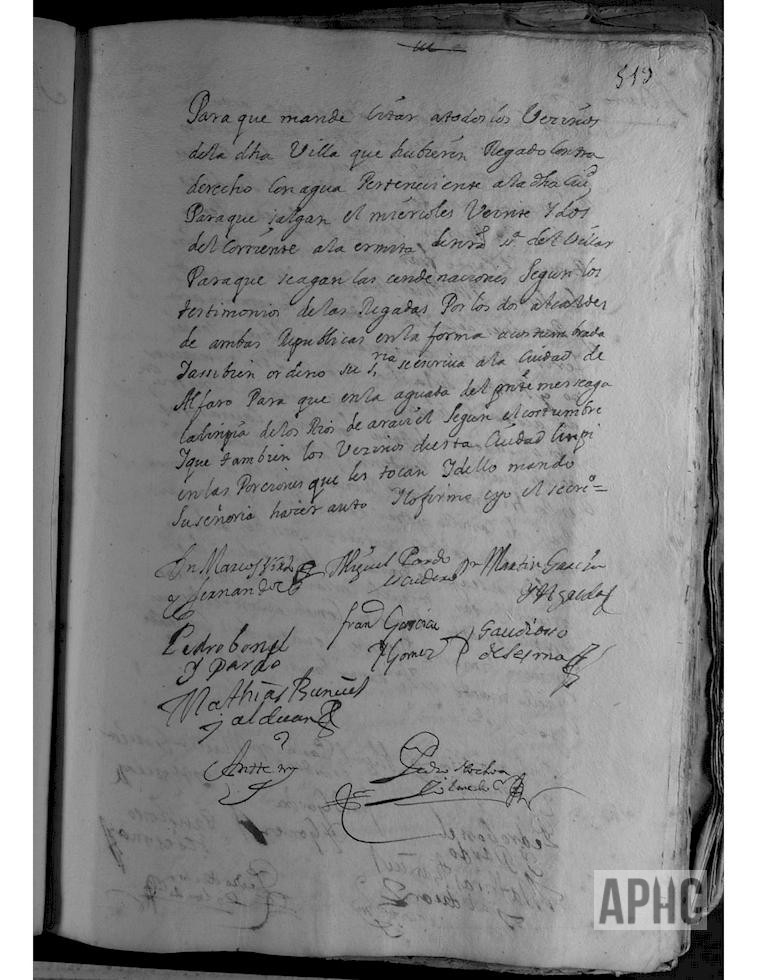 513
Para que mande Citar atodos los Vezinos
dela dha Villa que hubieren Regado Contra
derecho Con agua Perteneciente ala dha Ciud
Paraque salgan el miercoles Veinte Ydos
del Corriente ala ermita de nra sª del Villar
Paraque seagan las condenaciones Segun los
testimonios delas Regadas Por los dos alcaldes
de ambas Republicas enla forma acostumbrada
Yassibien ordeno su sria seescriva ala Ciudad de
Alfaro Para que enla aguada del presente mes seaga
lalinpia delos Rios de araciel Segun el costumbre
Yque tambien los Vezinos desta Ciudad linpi
en las Porciones que les tocan Ydello mando
Suseñoria hacer auto Ylofirme yo el secreº=
Dn Marcos
Miguel Pardo
Dn Martin Garcia
y fernandez
escudero
Pedro bonel
y Pardo
fran Garcia
Y Gomez
Gaudioso
de Sesma
Mathias Buñuel
y alduan
Ante my
Pedro
APHC